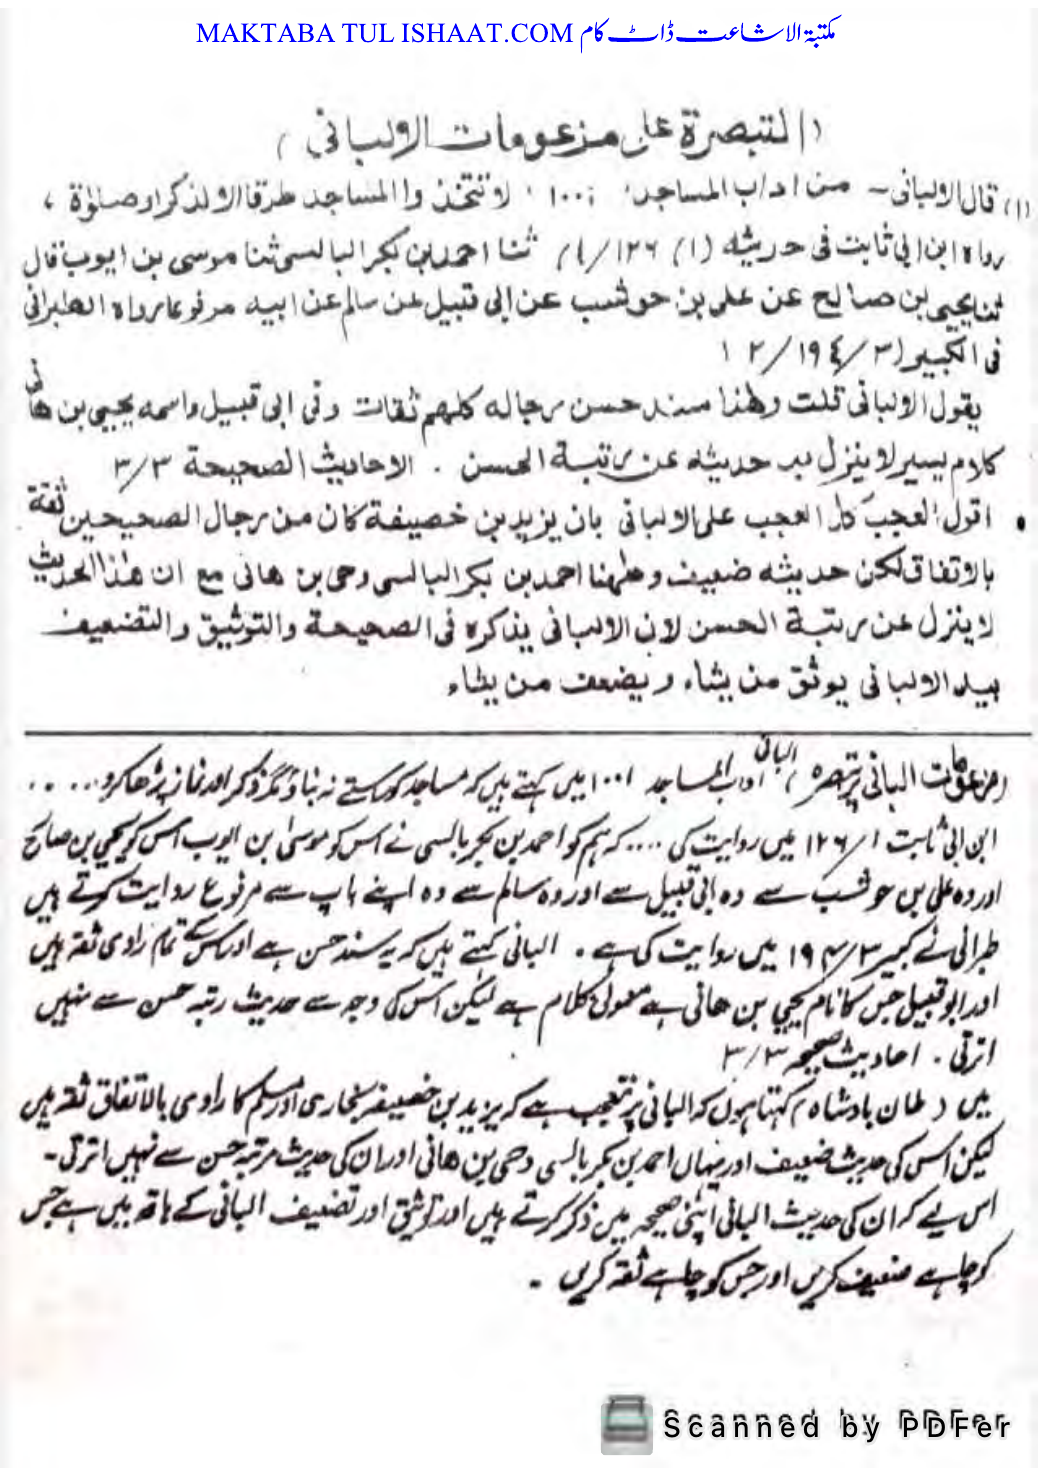 MAKTABA TUL ISHAAT.COM مکتبۃ الاشاعت ڈاٹ کام
(التبصرة على مزعومات الالبانی)
(۱) قال الالبانی - من اداب المساجد: ۱۰۰۱: لا تتخذوا المساجد طرقا الا لذكر او صلوٰة ،
رواه ابن ابی ثابت فی حدیثه (۱) ۱۲۶/۱) ثنا احمد بن بکر البالسی ثنا موسى بن ایوب قال
ثنا یحیی بن صالح عن علی بن حوشب عن ابی قبیل عن سالم عن ابیه مرفوعا رواه الطبرانی
فی الکبیر (۳/۱۹٤/۲)
یقول الالبانی قلت وهٰذا سند حسن رجاله کلهم ثقات وفی ابی قبیل واسمه یحیی بن هانی
کلام یسیر لا ینزل به حدیثه عن رتبة الحسن . الاحادیث الصحیحة ۳/۳
• اقول العجب کل العجب علی الالبانی بان یزید بن خصیفة کان من رجال الصحیحین ثقة
بالاتفاق لکن حدیثه ضعیف وههنا احمد بن بکر البالسی وحی بن هانی مع ان هٰذا الحدیث
لا ینزل عن رتبة الحسن لان الالبانی یذکره فی الصحیحة والتوثیق والتضعیف
بید الالبانی یوثق من یشاء ویضعف من یشاء
(مزعومات البانی پر تبصرہ) البانی اداب المساجد ۱۰۰۱ میں کہتے ہیں کہ مساجد کو رستے نہ بناؤ مگر ذکر اور نماز پڑھا کرو ....
ابن ابی ثابت ۱۲۶/۱ میں روایت کی .... کہ ہم کو احمد بن بکر بالسی نے اس کو موسیٰ بن ایوب اس کو یحیی بن صالح
اور وہ علی بن حوشب سے وہ ابی قبیل سے اور وہ سالم سے وہ اپنے باپ سے مرفوع روایت کرتے ہیں
طبرانی نے کبیر ۱۹۴/۳ میں روایت کی ہے۔ البانی کہتے ہیں کہ یہ سند حسن ہے اور اس کے تمام راوی ثقہ ہیں
اور ابو قبیل جس کا نام یحیی بن ھانی ہے معمولی کلام ہے لیکن اس کی وجہ سے حدیث رتبہ حسن سے نہیں
اترتی . احادیث صحیحہ ۳/۳
میں (طان بادشاہ) کہتا ہوں کہ البانی پر تعجب ہے کہ یزید بن خصیفہ بخاری اور مسلم کا راوی بالاتفاق ثقہ ہیں
لیکن اس کی حدیث ضعیف اور یہاں احمد بن بکر بالسی وحی بن ھانی اور ان کی حدیث مرتبہ حسن سے نہیں اترتی ۔
اس لیے کہ ان کی حدیث البانی اپنی صحیحہ میں ذکر کرتے ہیں اور توثیق اور تضعیف البانی کے ہاتھ میں ہے جس
کو چاہے ضعیف کریں اور جس کو چاہے ثقہ کریں ۔
Scanned by PDFer